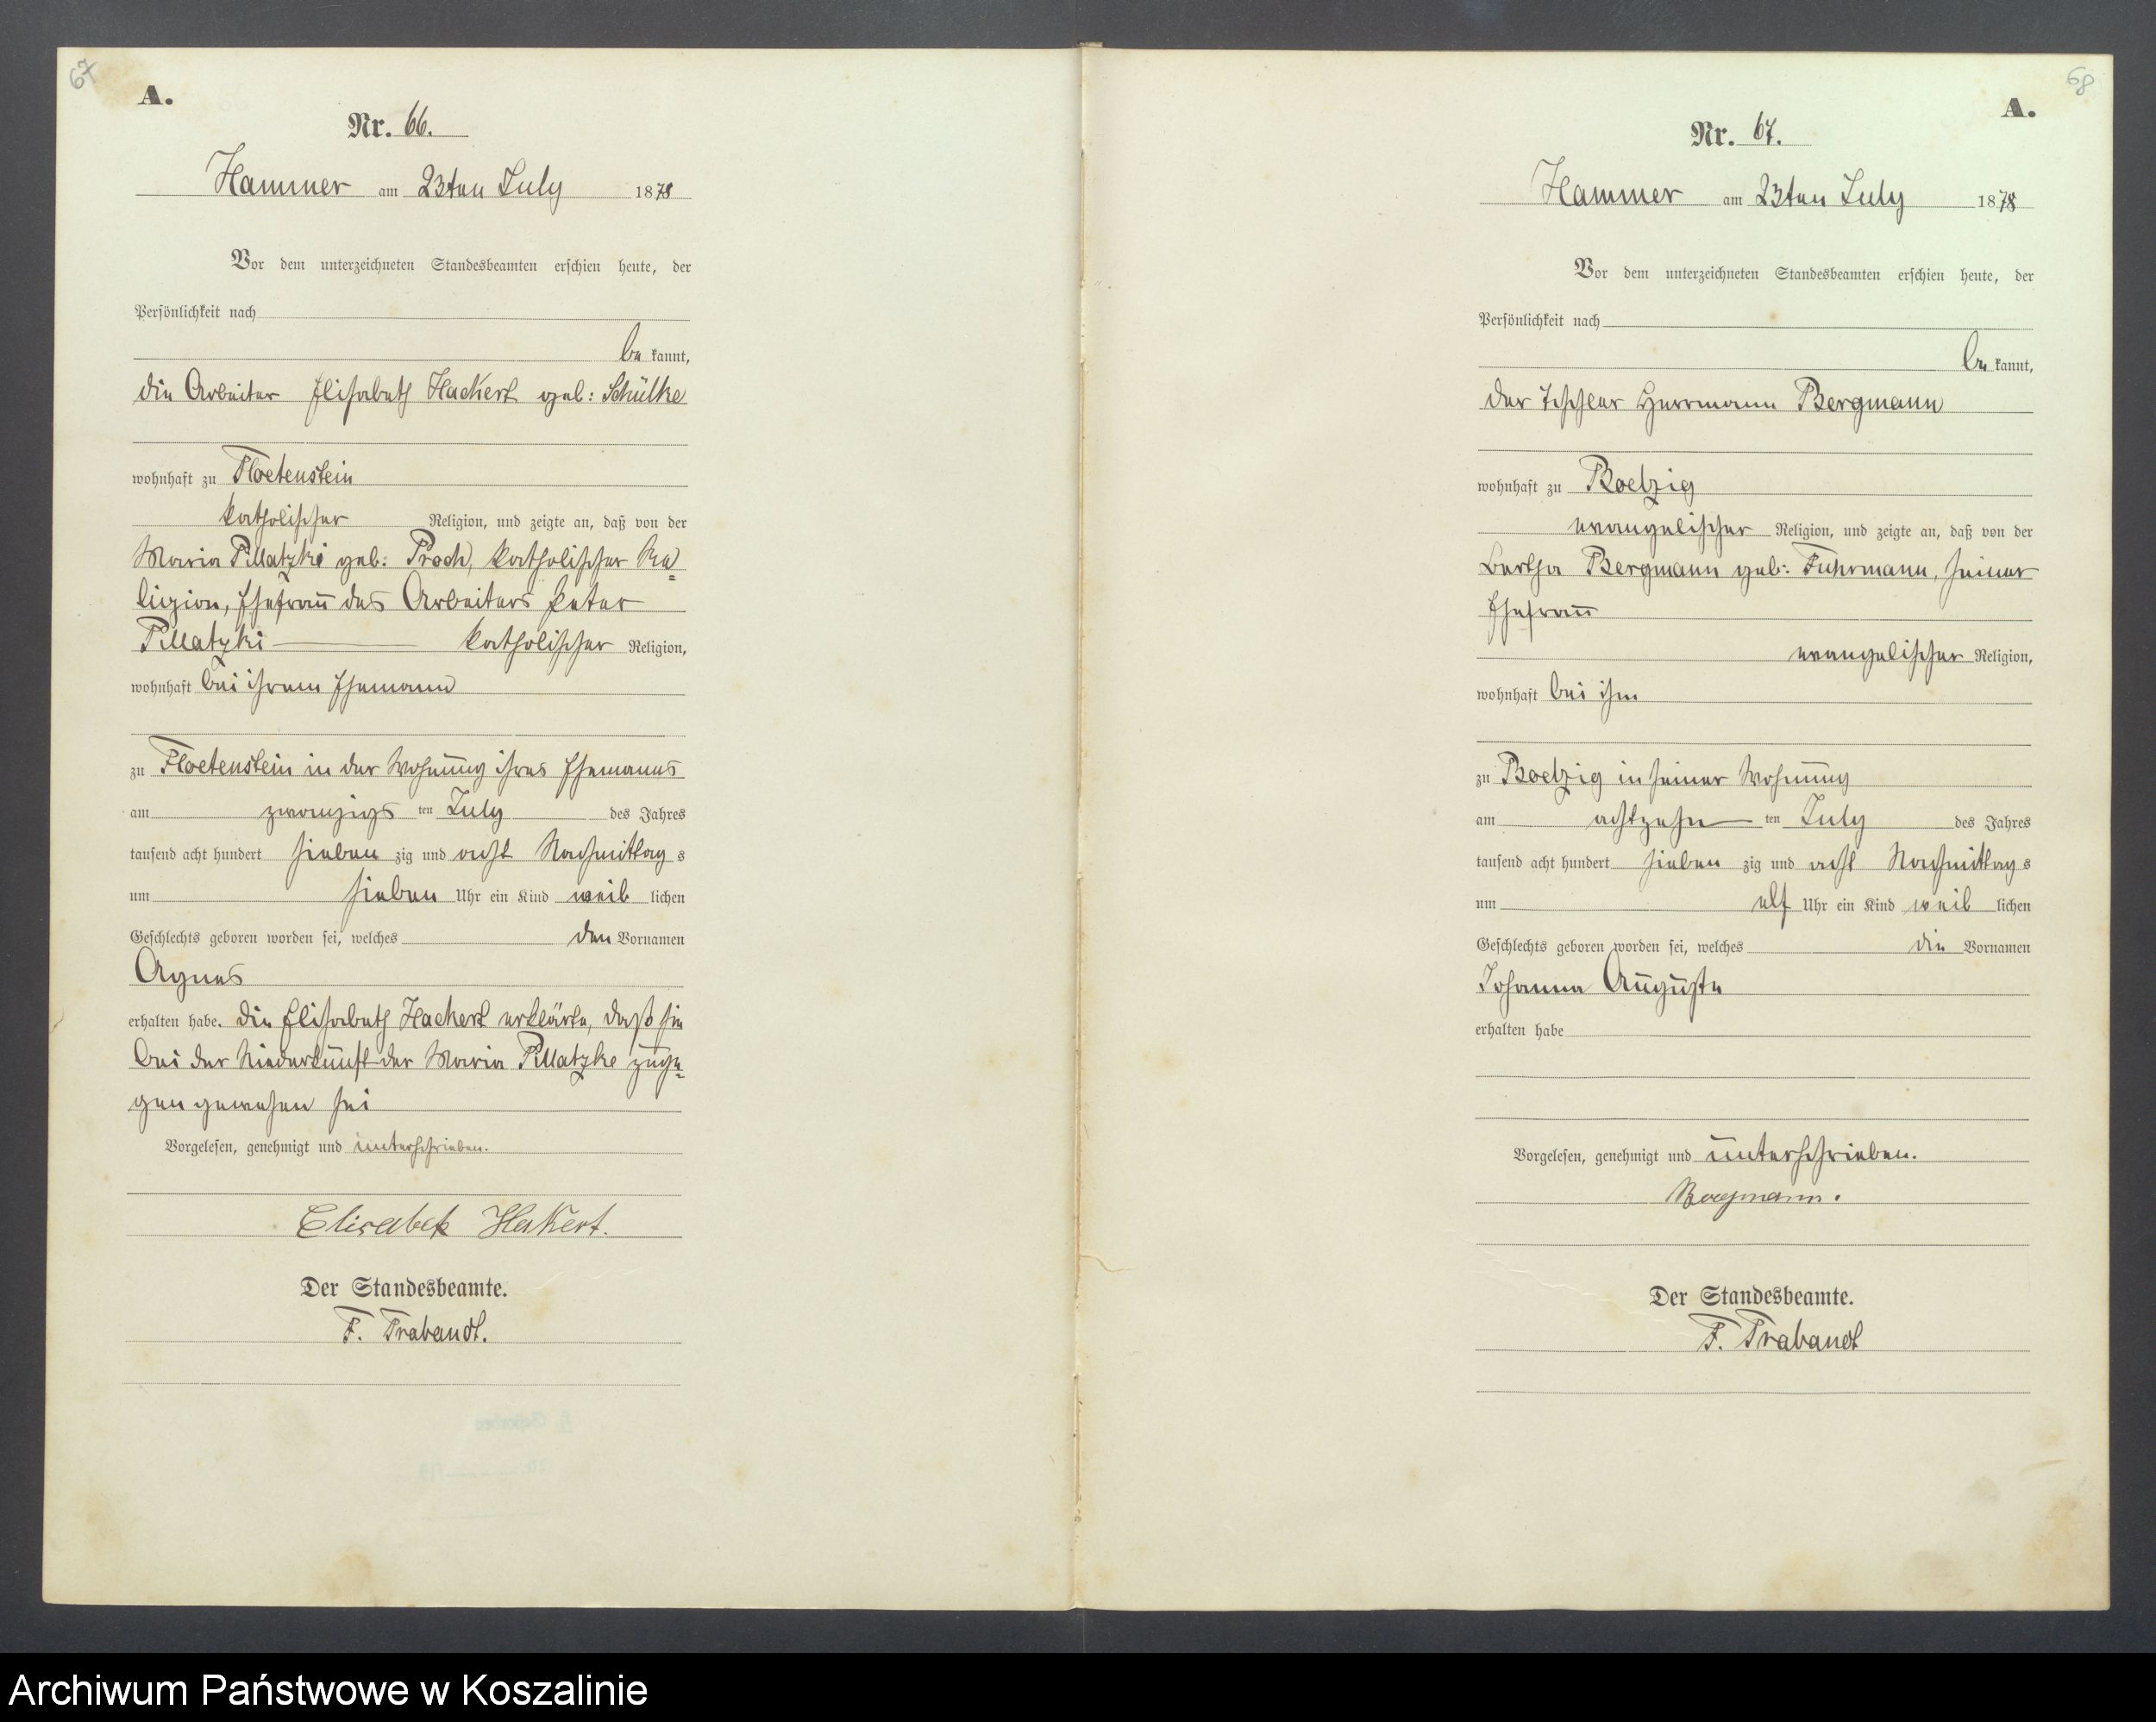 67
A.
Nr. 66.
Hammer am 23ten July 1878
Vor dem unterzeichneten Standesbeamten erschien heute, der
Persönlichkeit nach
be kannt,
die Arbeiter Elisabeth Hackert geb: Schülke
wohnhaft zu Floetenstein
katholischer Religion, und zeigte an, daß von der
Maria Pillatzki geb: Proch, katholischer Re=
ligion, Ehefrau des Arbeiters Peter
Pillatzki katholischer Religion,
wohnhaft bei ihrem Ehemann
zu Floetenstein in der Wohnung ihres Ehemanns
am zwanzigs ten July des Jahres
tausend acht hundert sieben zig und acht Nachmittag s
um sieben Uhr ein Kind weib lichen
Geschlechts geboren worden sei, welches den Vornamen
Agnes
erhalten habe. Die Elisabeth Hackert erklärte, daß sie
bei der Niederkunft der Maria Pillatzke zuge=
gen gewesen sei
Vorgelesen, genehmigt und unterschrieben.
Elisabet Hakert.
Der Standesbeamte.
F. Trabandt.
68
A.
Nr. 67.
Hammer am 23ten July 1878
Vor dem unterzeichneten Standesbeamten erschien heute, der
Persönlichkeit nach
be kannt,
der Tischler Herrmann Bergmann
wohnhaft zu Boelzig
evangelischer Religion, und zeigte an, daß von der
Bertha Bergmann geb: Fuhrmann, seiner
Ehefrau
evangelischer Religion,
wohnhaft bei ihm
zu Boelzig in seiner Wohnung
am achtzehn ten July des Jahres
tausend acht hundert sieben zig und acht Nachmittag s
um elf Uhr ein Kind weib lichen
Geschlechts geboren worden sei, welches die Vornamen
Johanna Auguste
erhalten habe
Vorgelesen, genehmigt und unterschrieben.
Bergmann.
Der Standesbeamte.
F. Trabandt
Archiwum Państwowe w Koszalinie